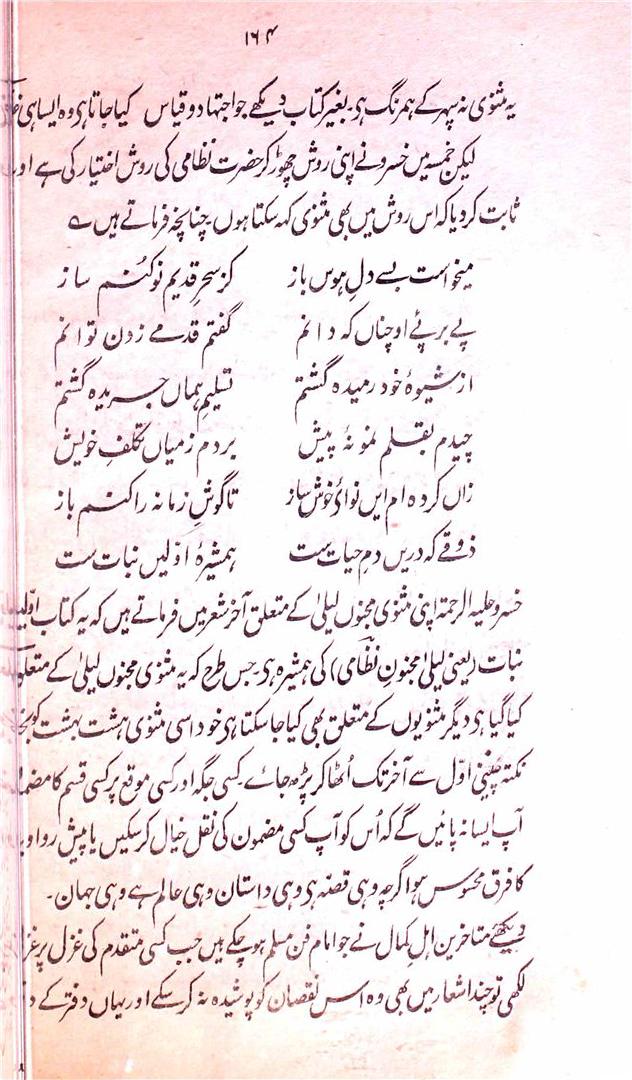 ۱۶۴
یہ مثنوی نہ سپہر کے ہمرنگ ہی۔ بغیر کتاب دیکھے جو اجتہاد و قیاس کیا جاتا ہی وہ ایسا ہی
لیکن خمسہ میں خسرو نے اپنی روش چھوڑ کر حضرت نظامی کی روش اختیار کی ہے اور
ثابت کر دیا کہ اس روش میں بھی مثنوی کہہ سکتا ہوں۔ چنانچہ فرماتے ہیں ؎
میخواست بسے دلِ ہوس باز کز سحرِ قدیم نو کنم ساز
پے بر پئے او چناں کہ دانم گفتم قدمے زدن توانم
از شیوۂ خود رمیدہ گشتم تسلیم ہماں جریدہ گشتم
چیدم بقلم نمونۂ پیش بردم زمیاں تکلفِ خویش
زاں کردہ ام ایں نوائے خوش ساز تا گوشِ زمانہ را کنم باز
ذوقے کہ دریں دمِ حیات ست ہمشیرۂ اوّلیں نبات ست
خسرو علیہ الرحمۃ اپنی مثنوی مجنوں لیلیٰ کے متعلق آخر شعر میں فرماتے ہیں کہ یہ کتاب اوّلیں
نبات (یعنی لیلیٰ مجنون نظامی) کی ہمشیرہ ہی۔ جس طرح کہ یہ مثنوی مجنوں لیلیٰ کے متعلق
کہا گیا ہی دیگر مثنویوں کے متعلق بھی کہا جا سکتا ہی خود اسی مثنوی ہشت بہشت کو
نکتہ چینی اوّل سے آخر تک اُٹھا کر پڑھ جائے۔ کسی جگہ اور کسی موقع پر کسی قسم کا
آپ ایسا نہ پائیں گے کہ اُس کو آپ کسی مضمون کی نقل خیال کر سکیں یا پیش رو اور
کا فرق محسوس ہو اگرچہ وہی قصّہ ہی وہی داستان وہی عالم ہے وہی جہان۔
دیکھئے متاخرین اہلِ کمال نے جو امام فن مسلم ہو چکے ہیں جب کسی متقدم کی غزل پر
لکھی تو چند اشعار میں بھی وہ اس نقصان کو پوشیدہ نہ کر سکے اور یہاں دفتر کے